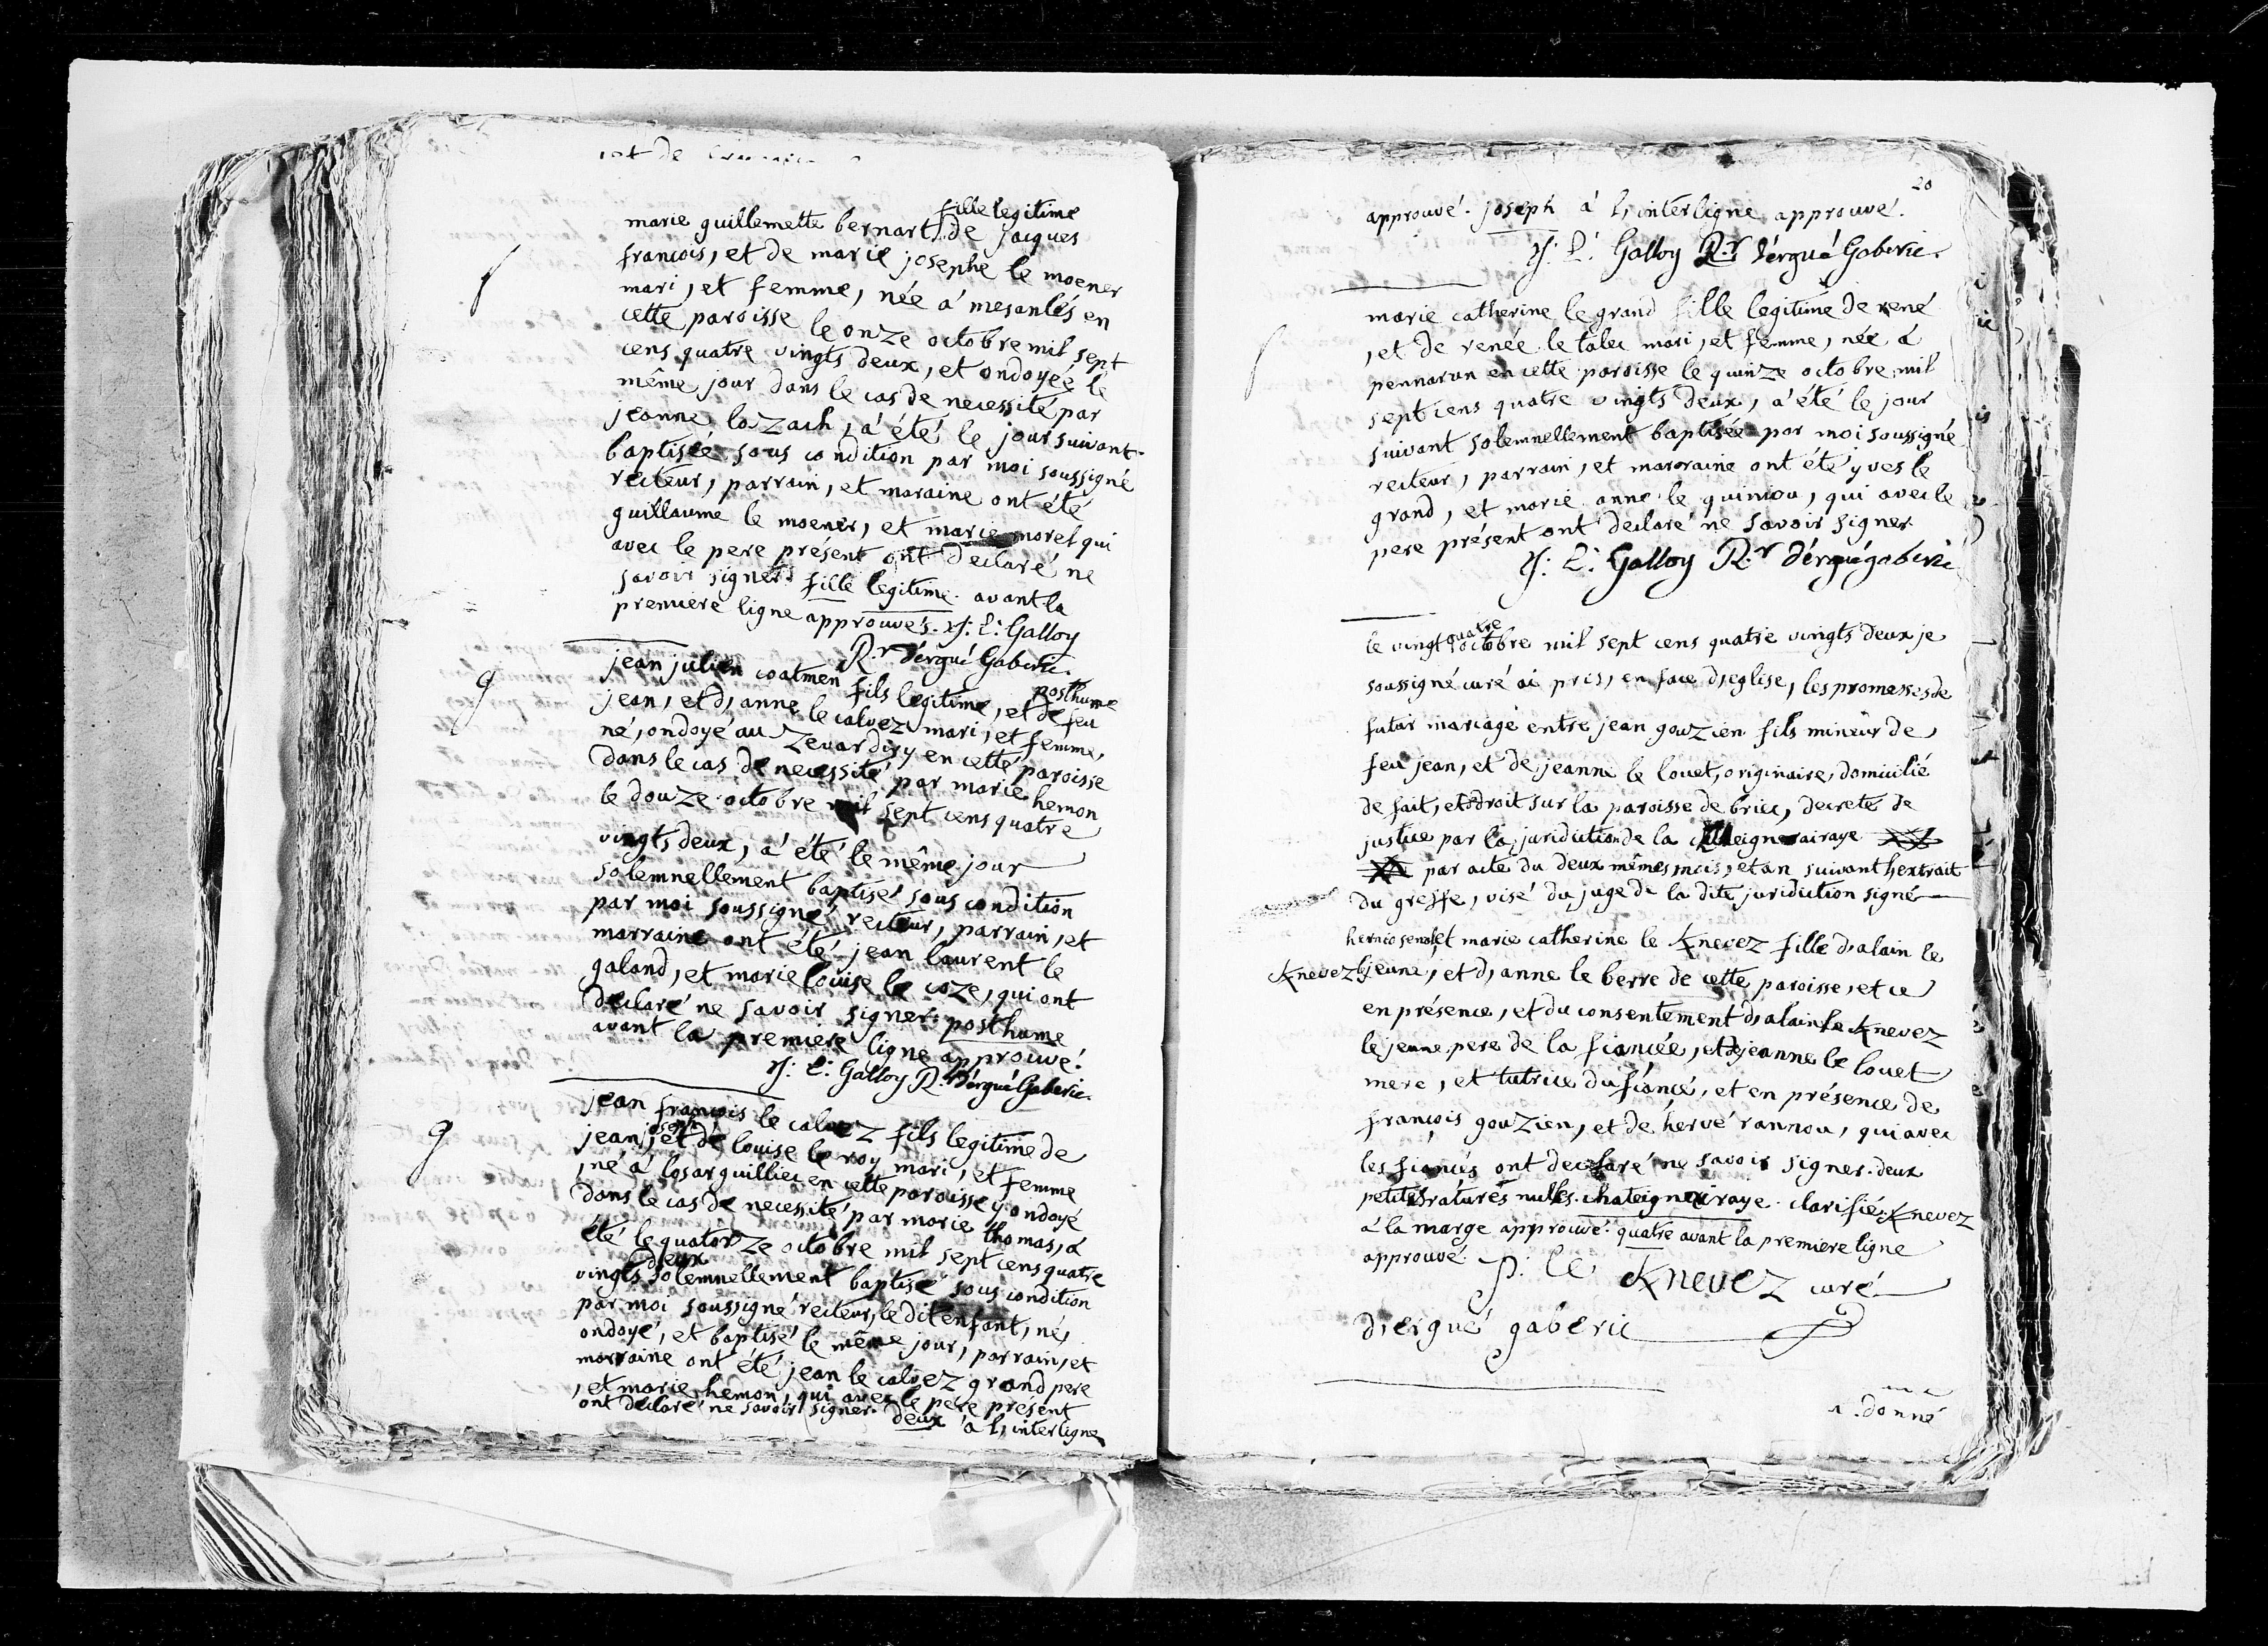 fille legitime
marie guillemette bernart de jacques
francois, et de marie josephe le moener
mari, et femme, née á mesanlés en
cette paroisse le onze octobre mil sept
cens quatre vingts deux, et ondoyée le
même jour dans le cas de necessité par
jeanne lozach, á été le jour suivant
baptisée sous condition par moi soussigné
recteur, parrain, et maraine ont été
guillaume le moener, et marie morel qui
avec le pere présent ont declaré ne
savoir signer. fille legitime. avant la
premiere ligne approuvés. J: L: Galloy
R.r d'ergué Gaberic.
jean julien coatmen fils legitime, et posthume de feu
jean, et d, anne le calvez mari, et femme,
né, ondoyé au Zevardiry en cette paroisse
dans le cas de necessité par marie hemon
le douze octobre mil sept cens quatre
vingts deux, á été le même jour
solemnellement baptisé sous condition
par moi soussigné recteur, parrain, et
marraine ont été jean laurent le
galand, et marie louise le coze, qui ont
declaré ne savoir signer. posthume
avant la premiere ligne approuvé.
J: L: Galloy R.r d'ergué Gaberic.
jean françois le calvez fils legitime de
jean joseph, et de louise le roy mari, et femme
, né á losarguilliec en cette paroisse y ondoyé
dans le cas de necessité par marie thomas, á
été le quatorze octobre mil sept cens quatre
vingts deux solemnellement baptisé sous condition
par moi soussigné recteur, le dit enfant, né,
ondoyé, et baptisé le même jour, parrain, et
marraine ont été jean le calvez grand pere
, et marie hemon, qui avec le pere présent
ont declaré ne savoir signer. deux á l, interligne
20
approuvé. joseph á l, interligne approuvé.
J: L: Galloy R.r d'ergué Gaberic.
marie catherine le grand fille legitime de rené
, et de renée le talec mari, et femme, née á
pennarun en cette paroisse le quinze octobre mil
sept cens quatre vingts deux, á été le jour
suivant solemnellement baptisée par moi soussigné
recteur, parrain, et marraine ont été yves le
grand, et marie anne le quiniou, qui avec le
pere présent ont declaré ne savoir signer
J: L: Galloy R.r d'ergué gaberic
le vingt quatre octobre mil sept cens quatre vingts deux je
soussigné curé ai pris, en face d, eglise, les promesses de
futur mariage entre jean gouzien fils mineur de
feu jean, et de jeanne le louet, originaire, domicilié
de fait, et droit sur la paroisse de briec, decreté de
justice par la juridiction de la chateignerairaye
par acte du deux mêmes mois, et an suivant l, extrait
du greffe, visé du juge de la dite juridiction signé
hernio senel, et marie catherine le Knevez fille d, alain le
Knevez le jeune, et d, anne le berre de cette paroisse, et ce
en présence, et du consentement d, alain le Knevez
le jeune pere de la fiancée, et de jeanne le louet
mere, et tutrice du fiancé, et en présence de
françois gouzien, et de hervé rannou, qui avec
les fiancés ont declaré ne savoir signer. deux
petites ratures nulles. chateigneriraye. clarifié. Knevez
á la marge approuvé. quatre avant la premiere ligne
approuvé. P: le Knevez curé
d, ergué gaberic
donné